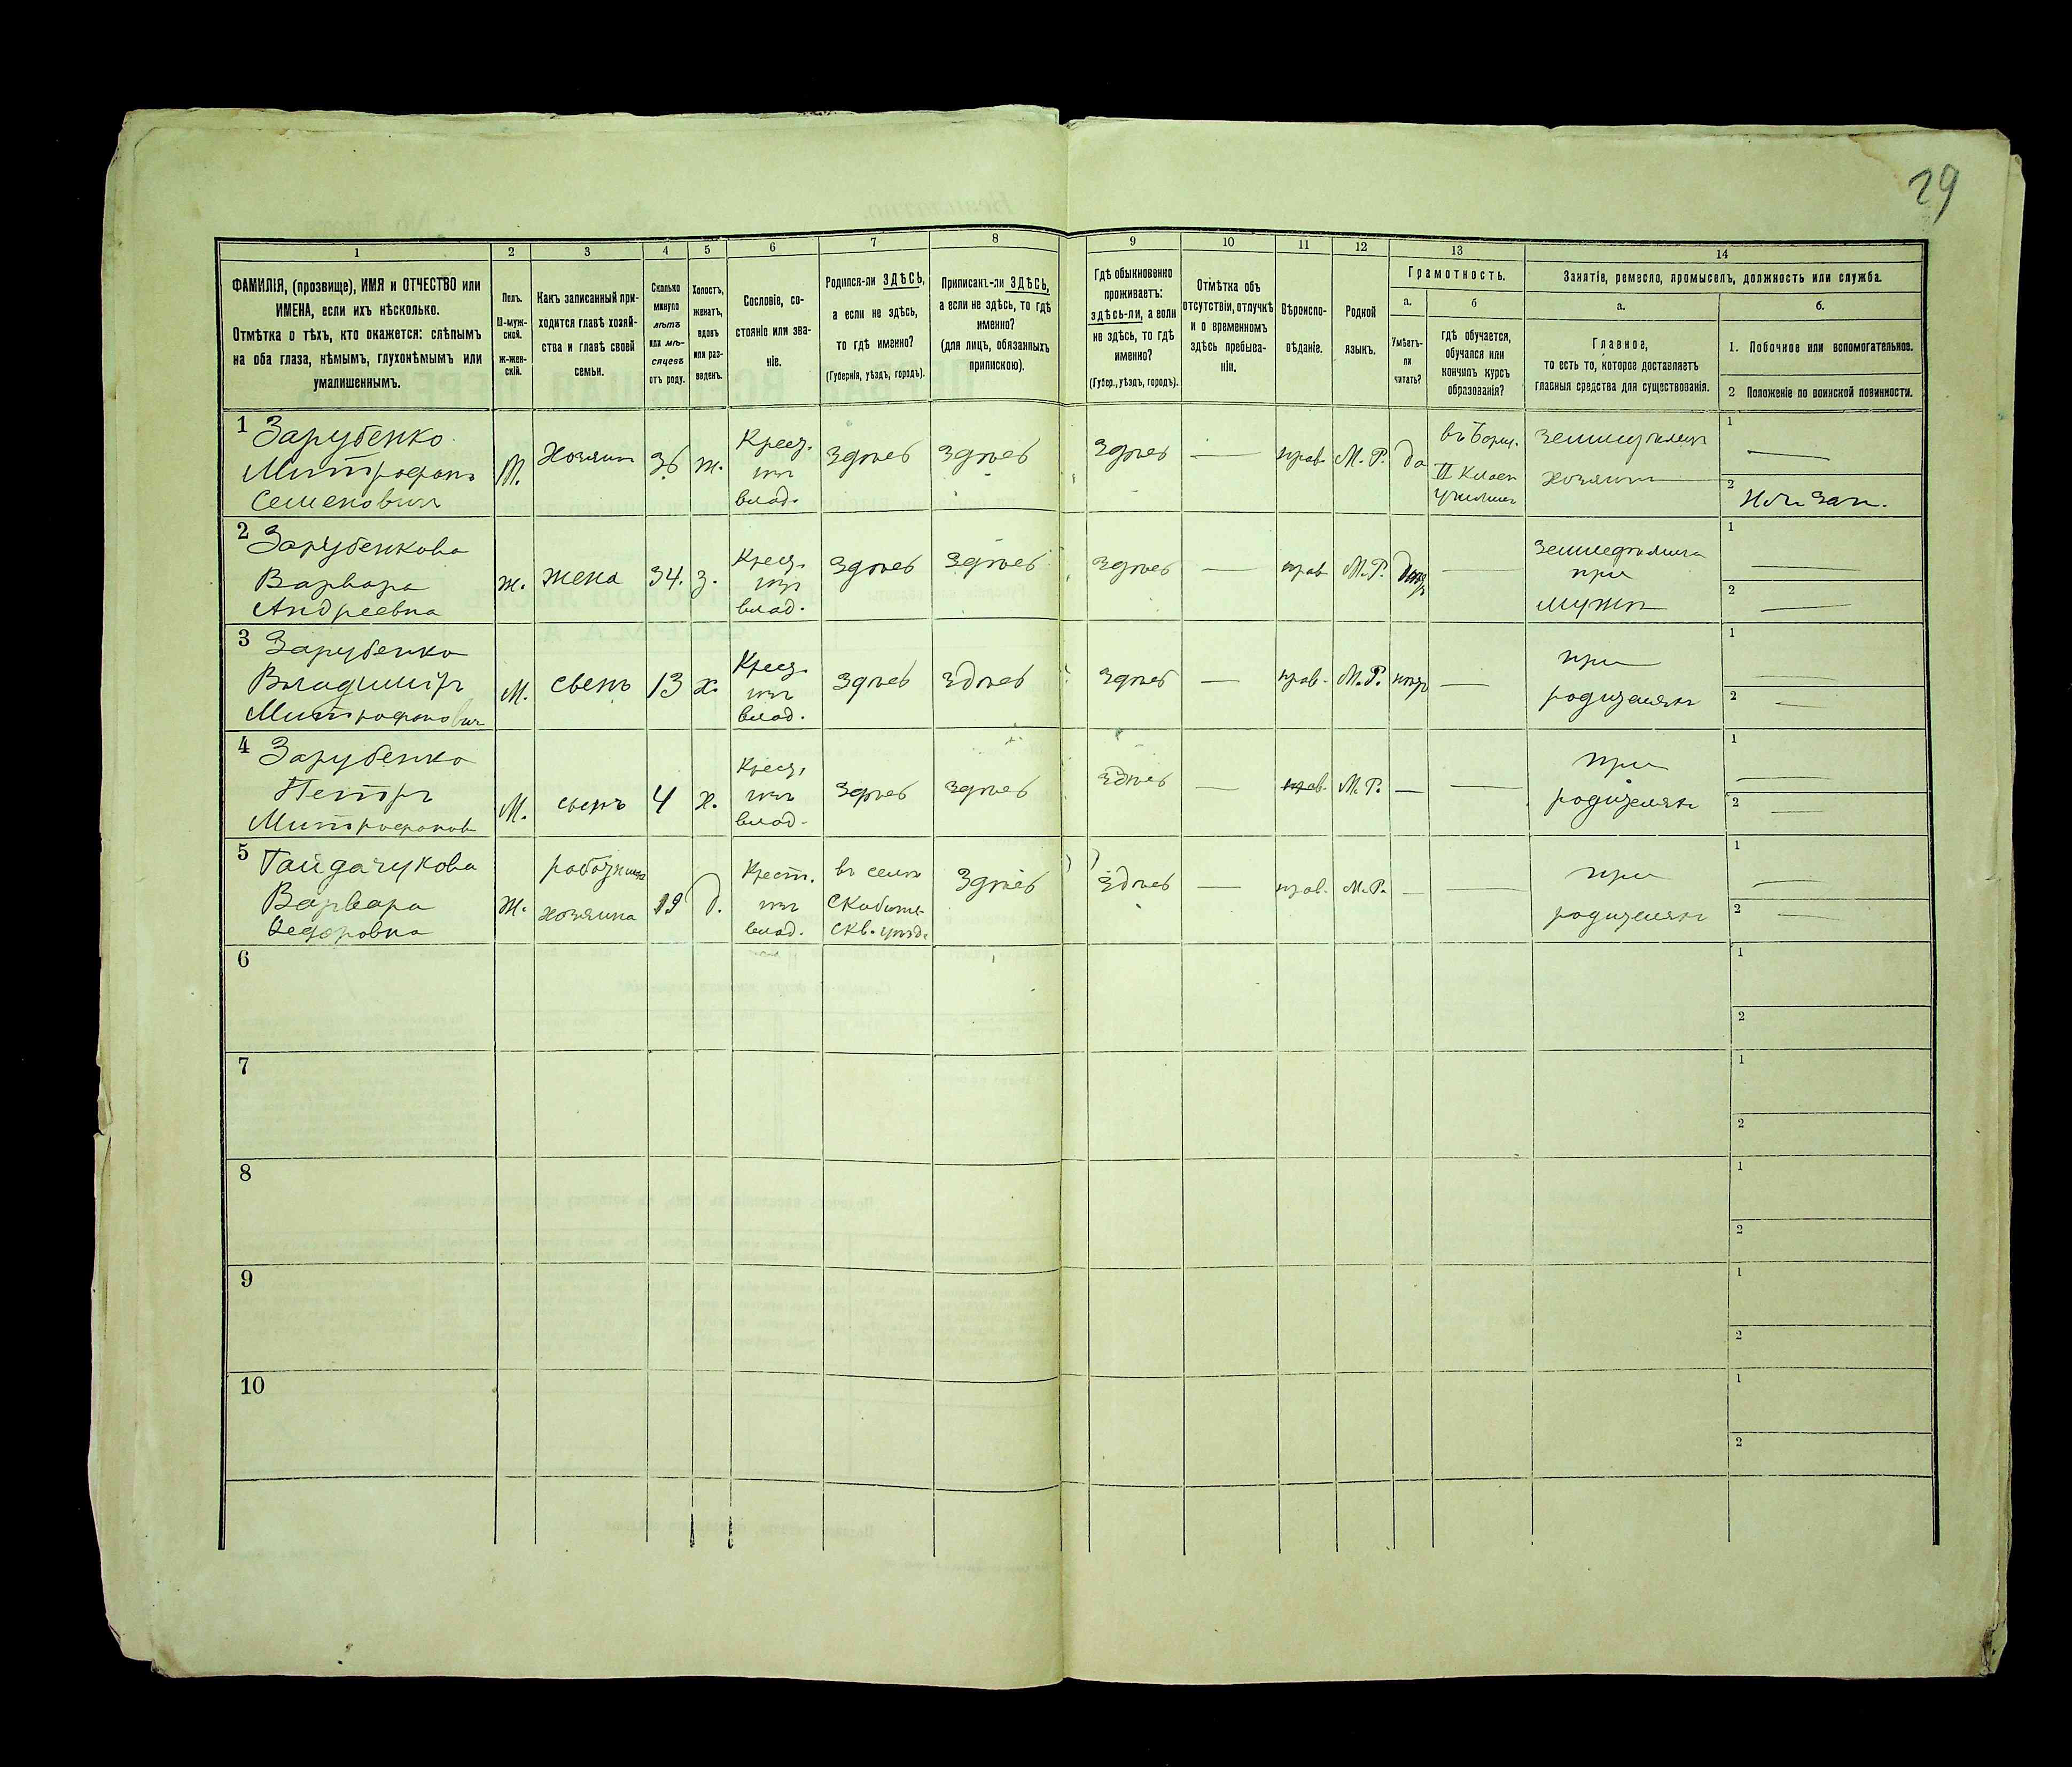 29
1 2 3 4 5 6 7 8 9 10 11 12 13 14
ФАМИЛІЯ, (прозвище), ИМЯ и ОТЧЕСТВО или
ИМЕНА, если ихъ нѣсколько.
Отмѣтка о тѣхъ, кто окажется: слѣпымъ
на оба глаза, нѣмымъ, глухонѣмымъ или
умалишеннымъ.
Полъ.
М-муж-
ской.
ж-жен-
скій.
Какъ записанный при-
ходится главѣ хозяй-
ства и главѣ своей
семьи.
Сколько
минуло
лѣтъ
или мѣ-
сяцевъ
отъ роду.
Холостъ,
женатъ,
вдовъ
или раз-
веденъ.
Сословіе, со-
стояніе или зва-
ніе.
Родился-ли ЗДѢСЬ,
а если не здѣсь,
то гдѣ именно?
(Губернія, уѣздъ, городъ).
Приписанъ-ли ЗДѢСЬ,
а если не здѣсь, то гдѣ
именно?
(для лицъ, обязанныхъ
припискою).
Гдѣ обыкновенно
проживаетъ:
здѣсь-ли, а если
не здѣсь, то гдѣ
именно?
(Губер., уѣздъ, городъ).
Отмѣтка объ
отсутствіи, отлучкѣ
и о временномъ
здѣсь пребыва-
ніи.
Вѣроиспо-
вѣданіе.
Родной
языкъ.
Грамотность.
а.
Умѣетъ-
ли
читать?
б
гдѣ обучается,
обучался или
кончилъ курсъ
образованія?
Занятіе, ремесло, промыселъ, должность или служба.
а.
Главное,
то есть то, которое доставляетъ
главныя средства для существованія.
б.
1. Побочное или вспомогательное.
2 Положеніе по воинской повинности.
1 Зарубенко
Митрофанъ
Семеновичъ
М.
Хозяинъ
36
ж.
Крест.
изъ
влад.
здѣсь
здѣсь
здѣсь
—
прав.
М. Р.
да
II Класн
училищ
хозяинъ
1 —
2
2 Зарубенкова
Варвара
Андреевна
ж.
жена
34.
з.
Крест.
изъ
влад.
здѣсь
здѣсь
здѣсь
—
прав
М. Р.
—
при
мужѣ
1 —
2 —
3 Зарубенко
Владиміръ
Митрофановичъ
М.
сынъ
13
х.
Крест.
изъ
влад.
здѣсь
здѣсь
здѣсь
—
прав.
М. Р.
нѣтъ
—
при
родителяхъ
1 —
2 —
4 Зарубенко
Петръ
Митрофанов
М.
сынъ
4
х.
Крест.
изъ
влад.
здѣсь
здѣсь
здѣсь
—
прав.
М. Р.
—
—
при
родителяхъ
1 —
2 —
5 Гайдачукова
Варвара
Ѳедоровна
Ж.
работница
хозяина
19
д.
Крест.
изъ
влад.
въ селѣ
Скв. уѣзд.
здѣсь
здѣсь
—
прав.
М. Р.
—
—
при
родителяхъ
1 —
2 —
6
1
2
7
1
2
8
1
2
9
1
2
10
1
2